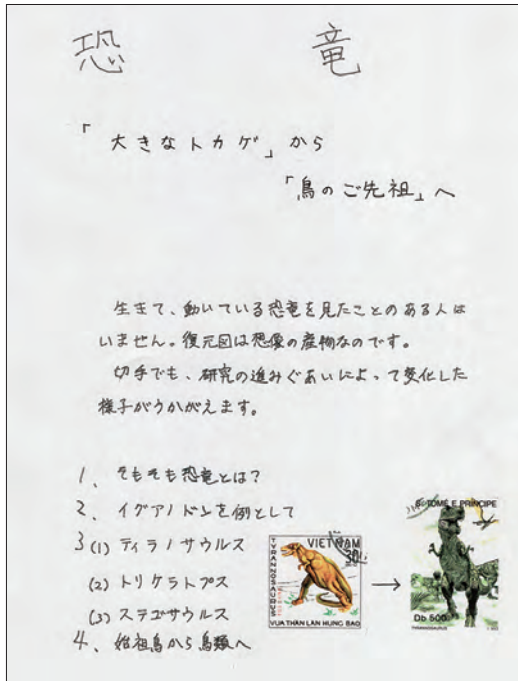 恐 竜
「大きなトカゲ」から
「鳥のご先祖」へ
生きて、動いている恐竜を見たことのある人は
いません。復元図は想像の産物なのです。
切手でも、研究の進みぐあいによって変化した
様子がうかがえます。
1、そもそも恐竜とは?
2、イグアノドンを例として
3(1) ティラノサウルス
(2) トリケラトプス
(3) ステゴサウルス
4、始祖鳥から鳥類へ
TYRANNOSAURUS
VIETNAM
VUA THẰN LẰN HUNG BAO
→
S. TOMÉ E PRÍNCIPE
Db 500
TYRANNOSAURUS